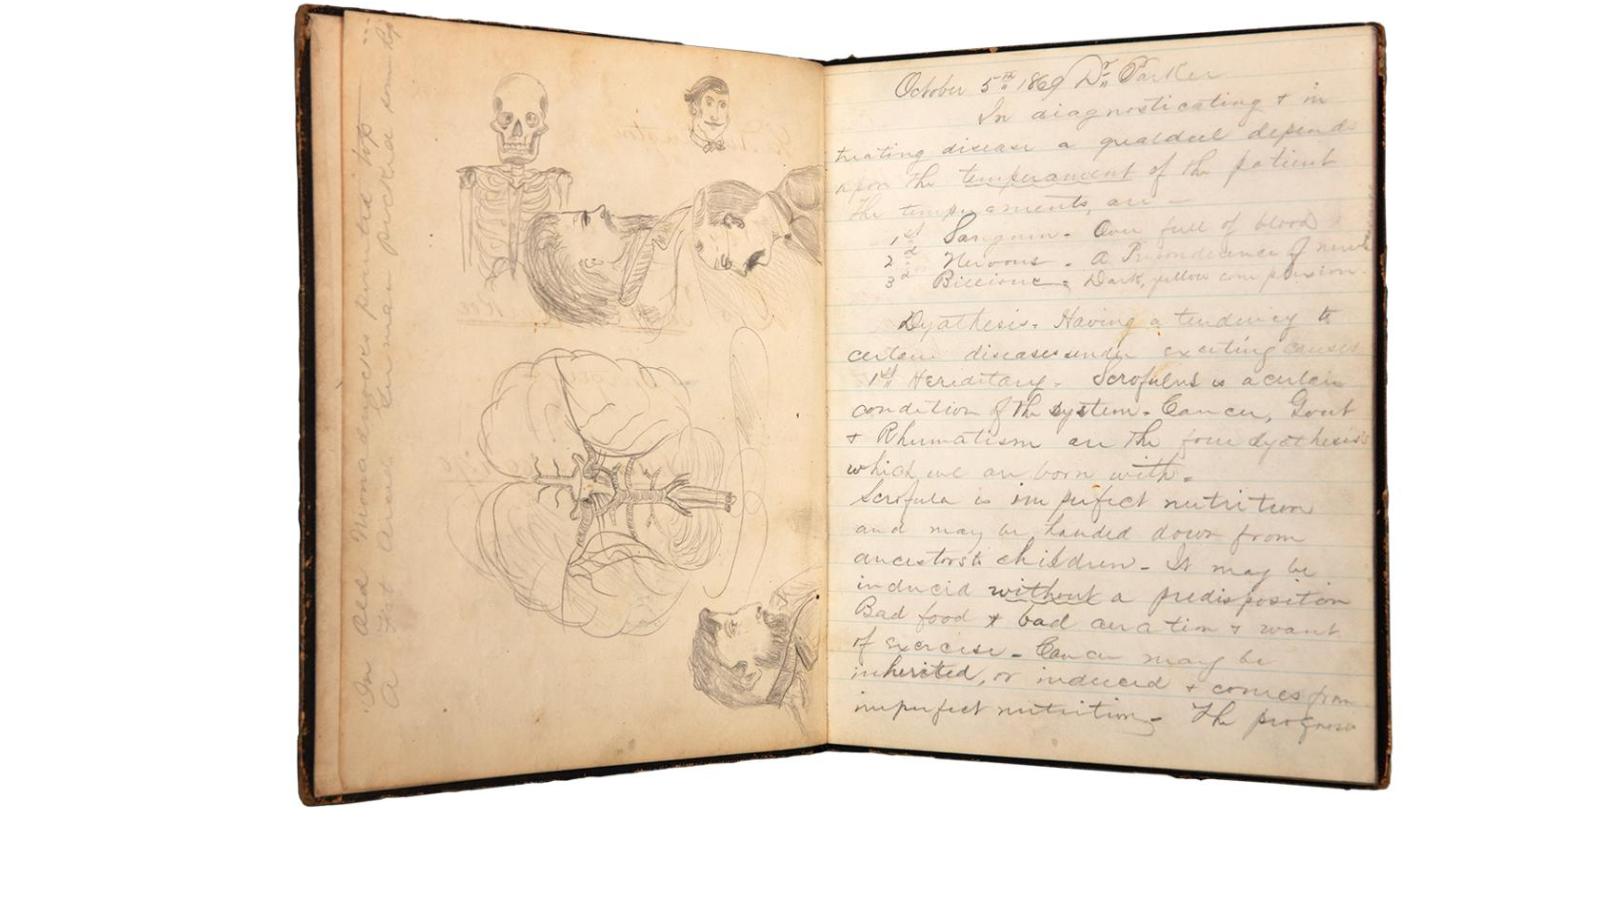 In Old Monadnocks pointed top
A
October 5th 1869 Dr Parker
In diagnosticating & in
treating disease a great deal depends
upon the temperament of the patient
The temperaments, are -
1st Sanguin - Over full of blood
2d Nervous - A Preponderance of nerve
3d Billious - Dark, yellow complexion.
Dyathesis. Having a tendency to
certain diseases under exciting causes
1st Hereditary. Scrofulus is a certain
condition of the system - Cancer, Gout
& Rhumatism are the four dyathesis's
which we are born with.
Scrofula is imperfect nutrition
and may be handed down from
ancestors to children - It may be
induced without a predisposition
Bad food & bad aeration & want
of exercise - Cancer may be
inherited, or induced & comes from
imperfect nutrition - The prognosis